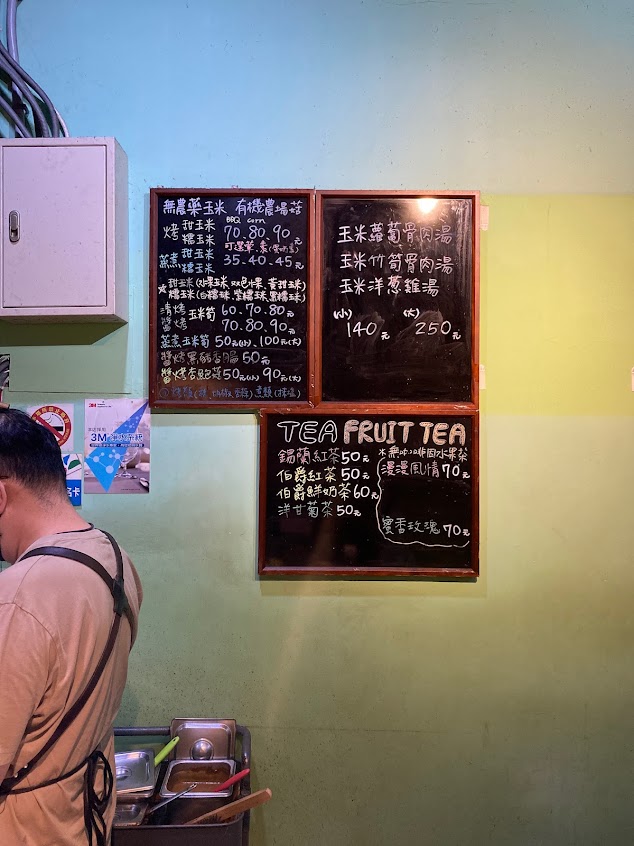 無農藥玉米 有機農場菇
BBQ corn
烤 甜玉米 糯玉米 70.80.90元
可選葷、素
蒸煮 甜玉米 糯玉米 35.40.45元
甜玉米(水果玉米、双色水果、黃甜玉米)
糯玉米(白糯珠、紫糯珠、黑糯珠)
清烤 玉米筍 60.70.80元
醬烤 70.80.90元
蒸煮玉米筍 50元(小)、100元(大)
醬烤黑豬香腸50元
醬烤杏鮑菇50元(小) 90元(大)
玉米蘿蔔骨肉湯
玉米竹筍骨肉湯
玉米洋蔥雞湯
(小) (大)
140元 250元
TEA FRUIT TEA
錫蘭紅茶50元
伯爵紅茶50元
伯爵鮮奶茶60元
洋甘菊茶50元
無咖啡因水果茶
漫漫風情70元
蜜香玫瑰70元
3M
卡